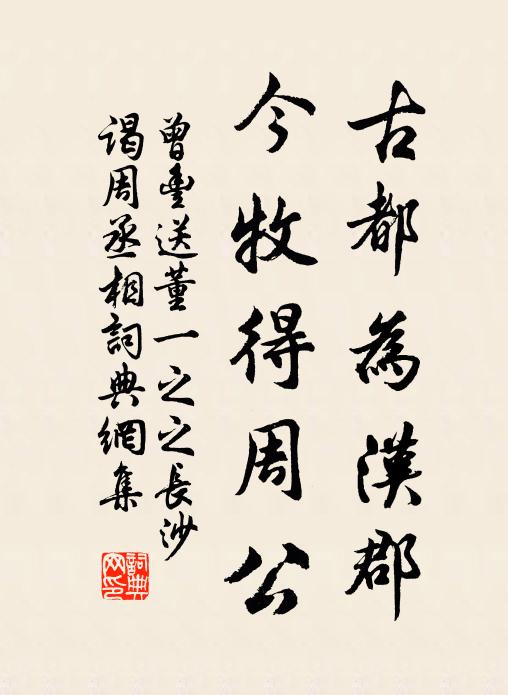 古都為漢郡
今牧得周公
曾豐送董一之之長沙
謁周丞相詞典網集
詞典网印